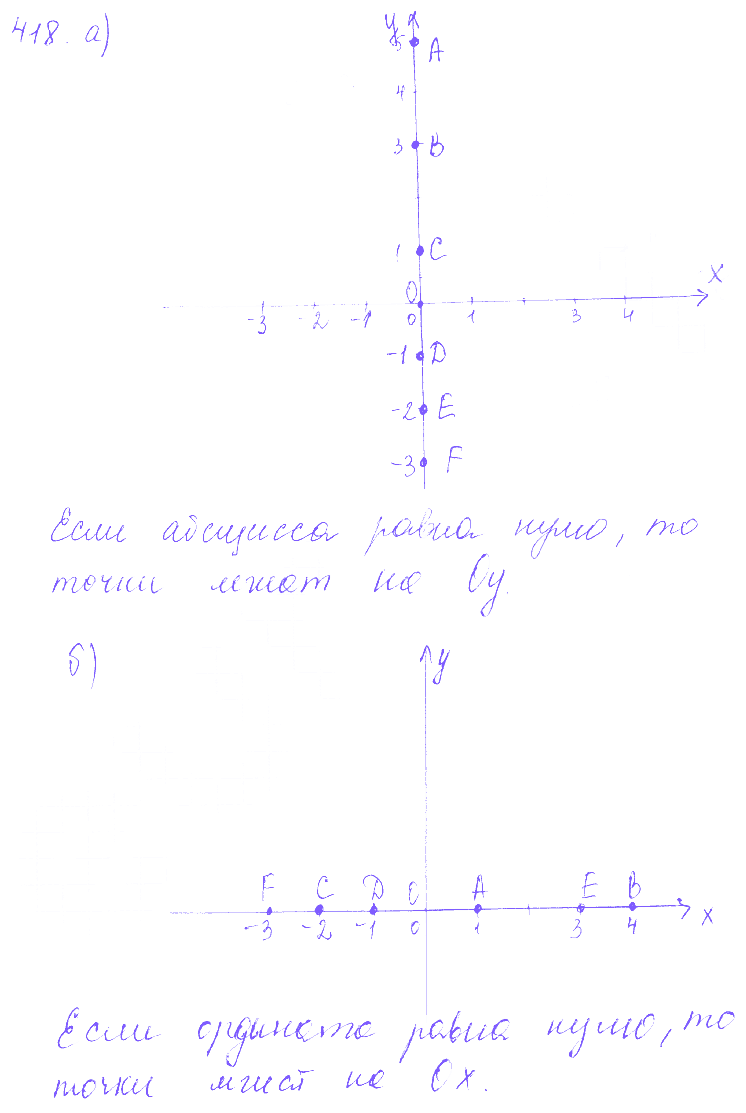 418. а)
у
5 А
4
3 В
1 С
О х
-3 -2 -1 0 1 3 4
-1 D
-2 E
-3 F
Если абсцисса равна нулю, то
точки лежат на Оу.
б)
у
F C D О A E B
-3 -2 -1 0 1 3 4 х
Если ордината равна нулю, то
точки лежат на Ох.